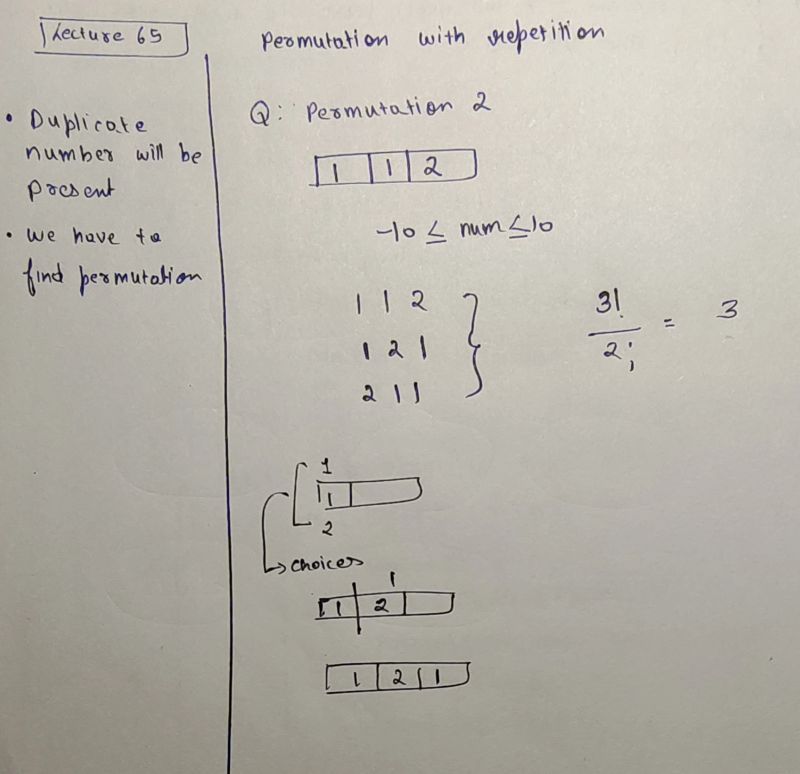 Lecture 65
Permutation with repetition
• Duplicate
number will be
present
• we have to
find permutation
Q: Permutation 2
1 1 2
-10 ≤ num ≤ 10
1 1 2
1 2 1
2 1 1
3!
2!
= 3
1
1
2
choices
1
1 2
1 2 1